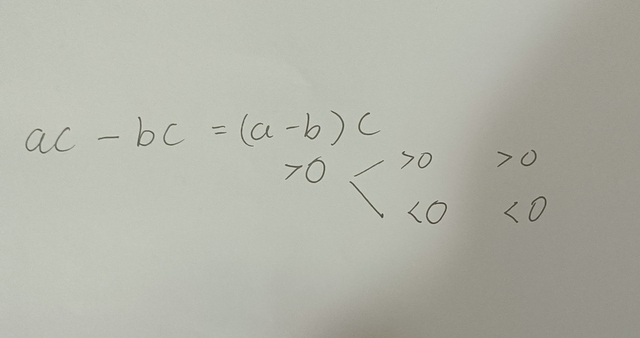 ac - bc = (a-b) c
>0 >0 >0
<0 <0